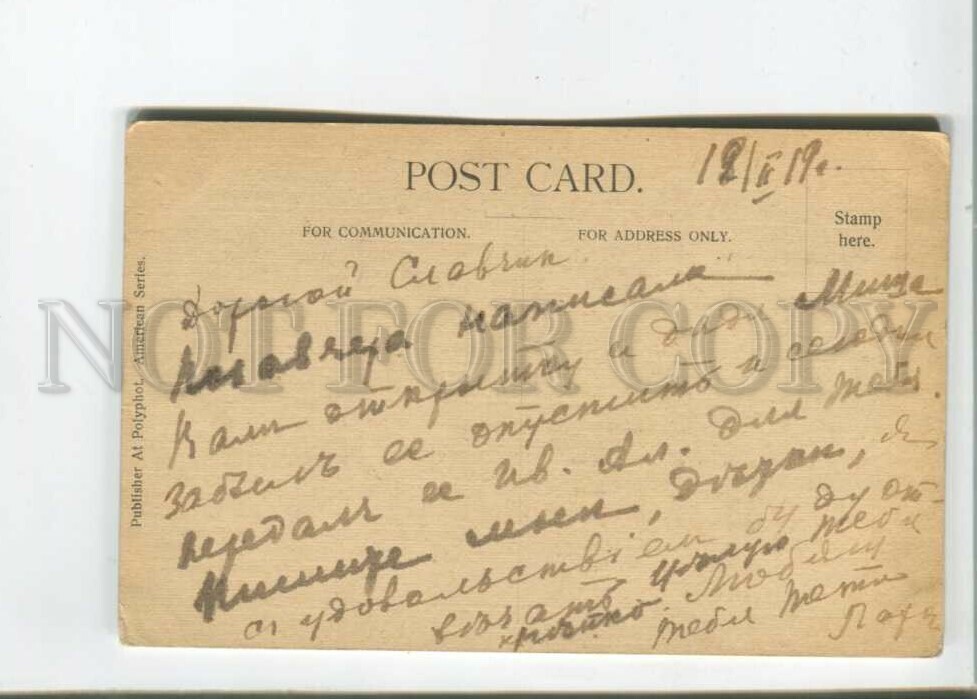 POST CARD.
12/II 19г.
FOR COMMUNICATION.
FOR ADDRESS ONLY.
Stamp
here.
Publisher At Polyphot, American Series.
NOT FOR COPY
Дорогой Славчик
написала
Вамъ открытку а дядя Миша
забылъ ее опустить и
передалъ ее Ив. Ал. для тебя.
Пишите мнѣ, я
съ удовольствіем буду от-
вѣчать цѣлую тебя
крѣпко. Любящ
тебя тетя